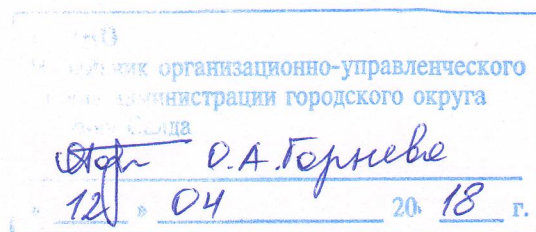 организационно-управленческого
администрации городского округа
Салда
О.А.Горнева
« 12 » 04 2018 г.